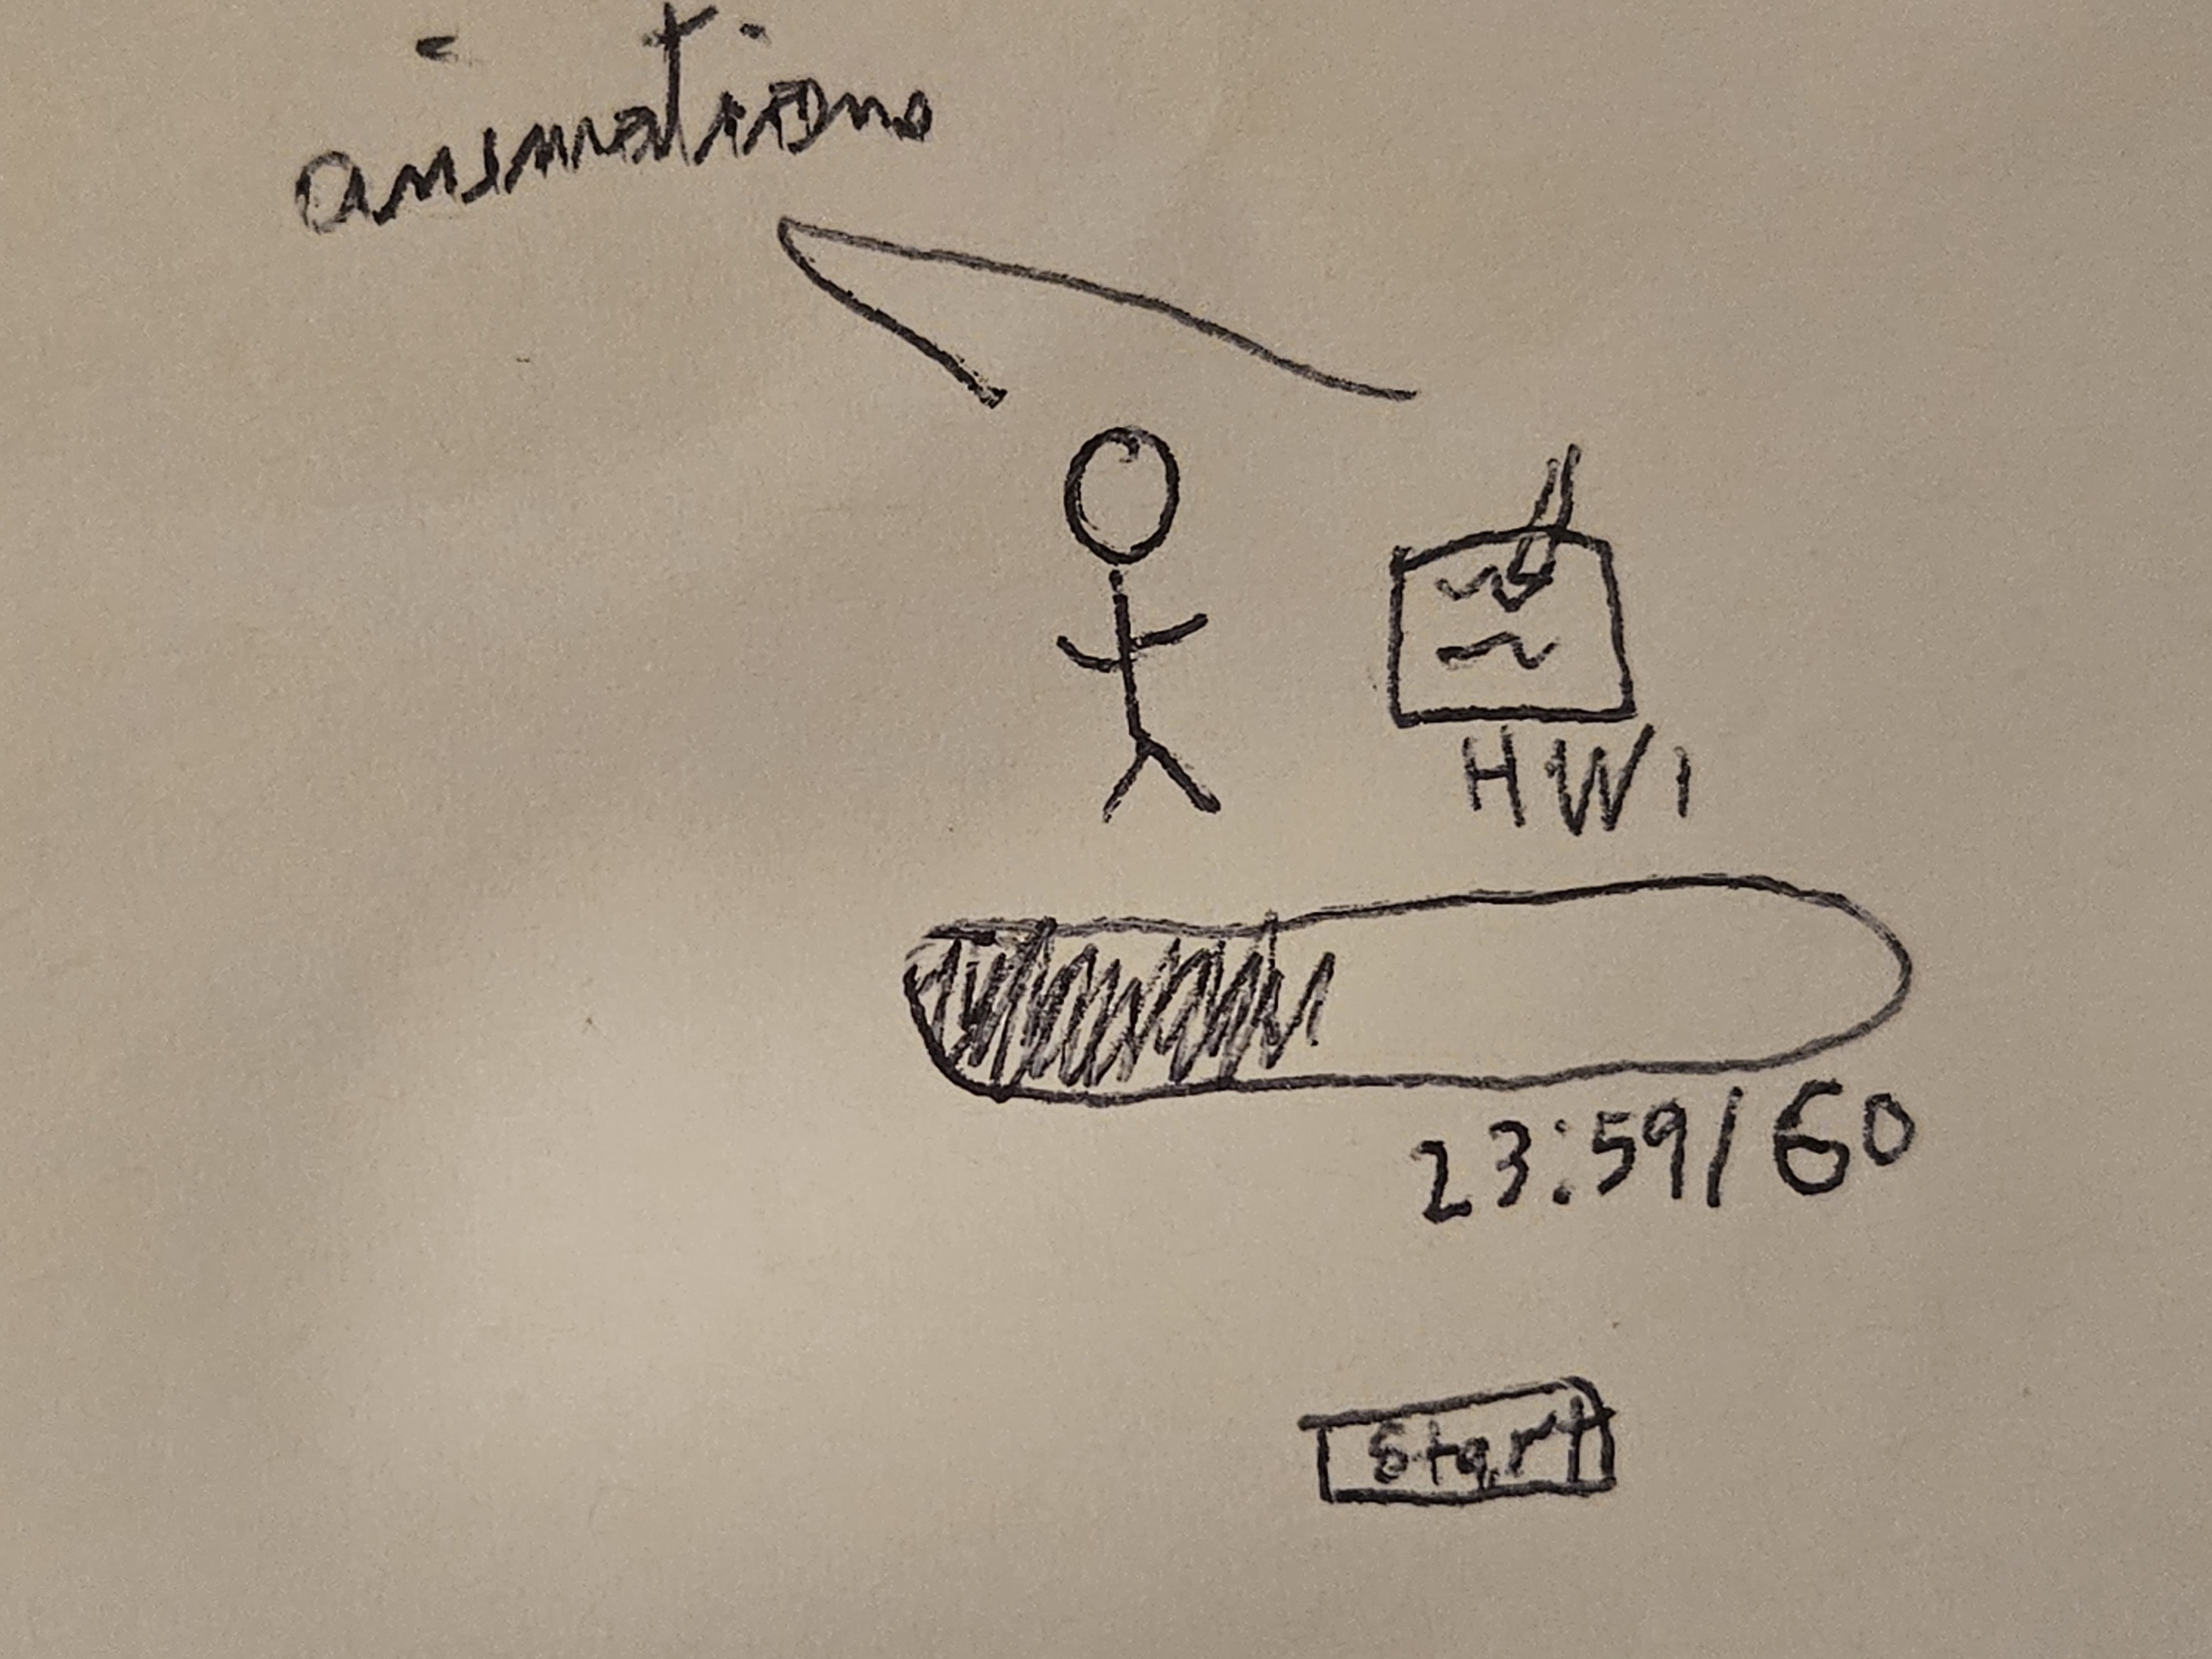 animations
HW1
23:59/60
Start